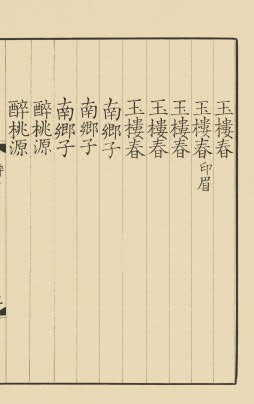 玉樓春
玉樓春印眉
玉樓春
玉樓春
玉樓春
南鄉子
南鄉子
南鄉子
醉桃源
醉桃源